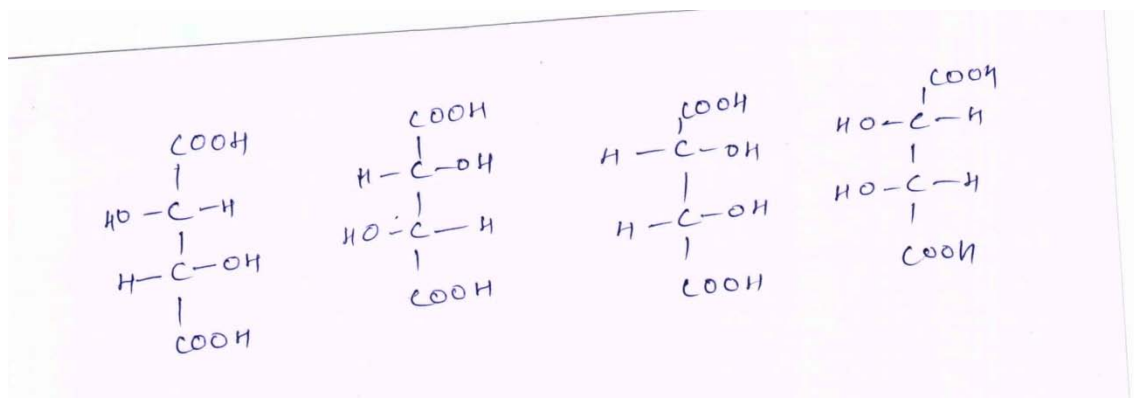 COOH
|
HO – C – H
|
H – C – OH
|
COOH
COOH
|
H – C – OH
|
HO – C – H
|
COOH
COOH
|
H – C – OH
|
H – C – OH
|
COOH
COOH
|
HO – C – H
|
HO – C – H
|
COOH